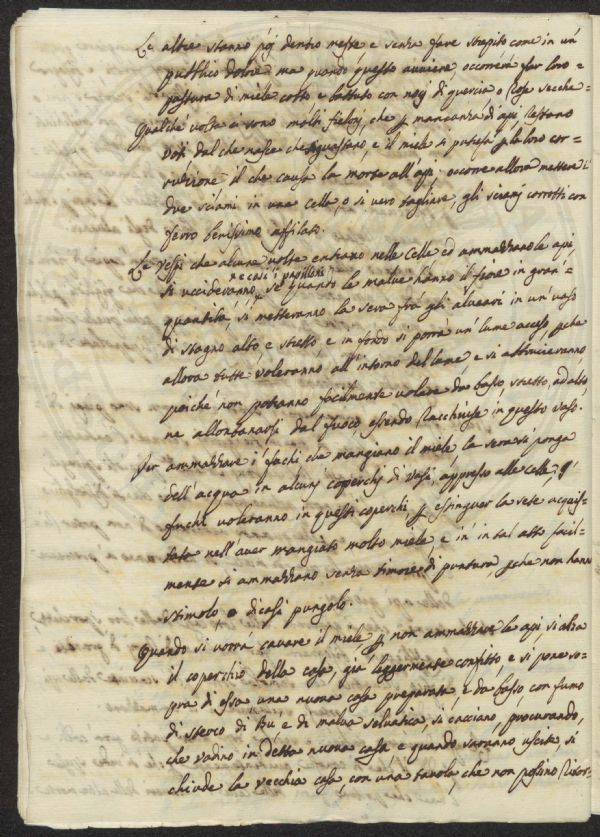 Le altre stanno poi dentro meste e senza fare strepito come in un
pubblico dolore ma quando questo avviene, occorrerà far loro
pastura di miele cotto e battuto con noci di quercia o Rose secche
Qualche volta ci sono molti fialoni, che p mancanza di api Restano
voti dal che nasce che si guastano, e il miele si putrefà p la loro cor=
ruzione il che causa la morte all'api: occorre allora mettere
due sciami in una Cella, o si vero tagliare, gli sciami corrotti con
ferro benissimo affilato.
Le Vespi che alcune volte entrano nelle Celle ed ammazzano le api,
si uccideranno,
ne casi i papilloni
se quando le malve hanno il fiore in gran=
quantità, si metteranno la sera frà gli alveari in un vaso
di stagno alto e stretto e in fondo si porrà un lume acceso, pche
allora tutte voleranno all'intorno del lume e si abbrucieranno
poiché non potranno facilmente volare da basso, stretto, ad alto
ne allontanarsi dal fuoco, essendo Racchiuse in questo vaso.
Per ammazzare i fuchi che mangiano il miele la sera si ponga
dell'acqua in alcuni coperchi di vasi, appresso alle celle,
fuchi voleranno in questi coperchi, p estinguer la sete acquis=
tata nell'aver mangiato molto miele, e in tal atto facil=
mente si ammazzano senza timore di puntura, pche non hanno
stimolo, o dicasi pungolo.
Quando si vorrà cavare il miele p non ammazzare le api, si alza
il coperchio della casa, già leggermente confitto, e si pone so=
pra di essa una nuova casa preparata, e da basso con fumo
di sterco di Bu, e di malva selvatica, si cacciano, procurando,
che vadino in detta nuova casa e quando saranno uscite, si
chiude la vecchia casa, con una tavola, che non possino Ritor=